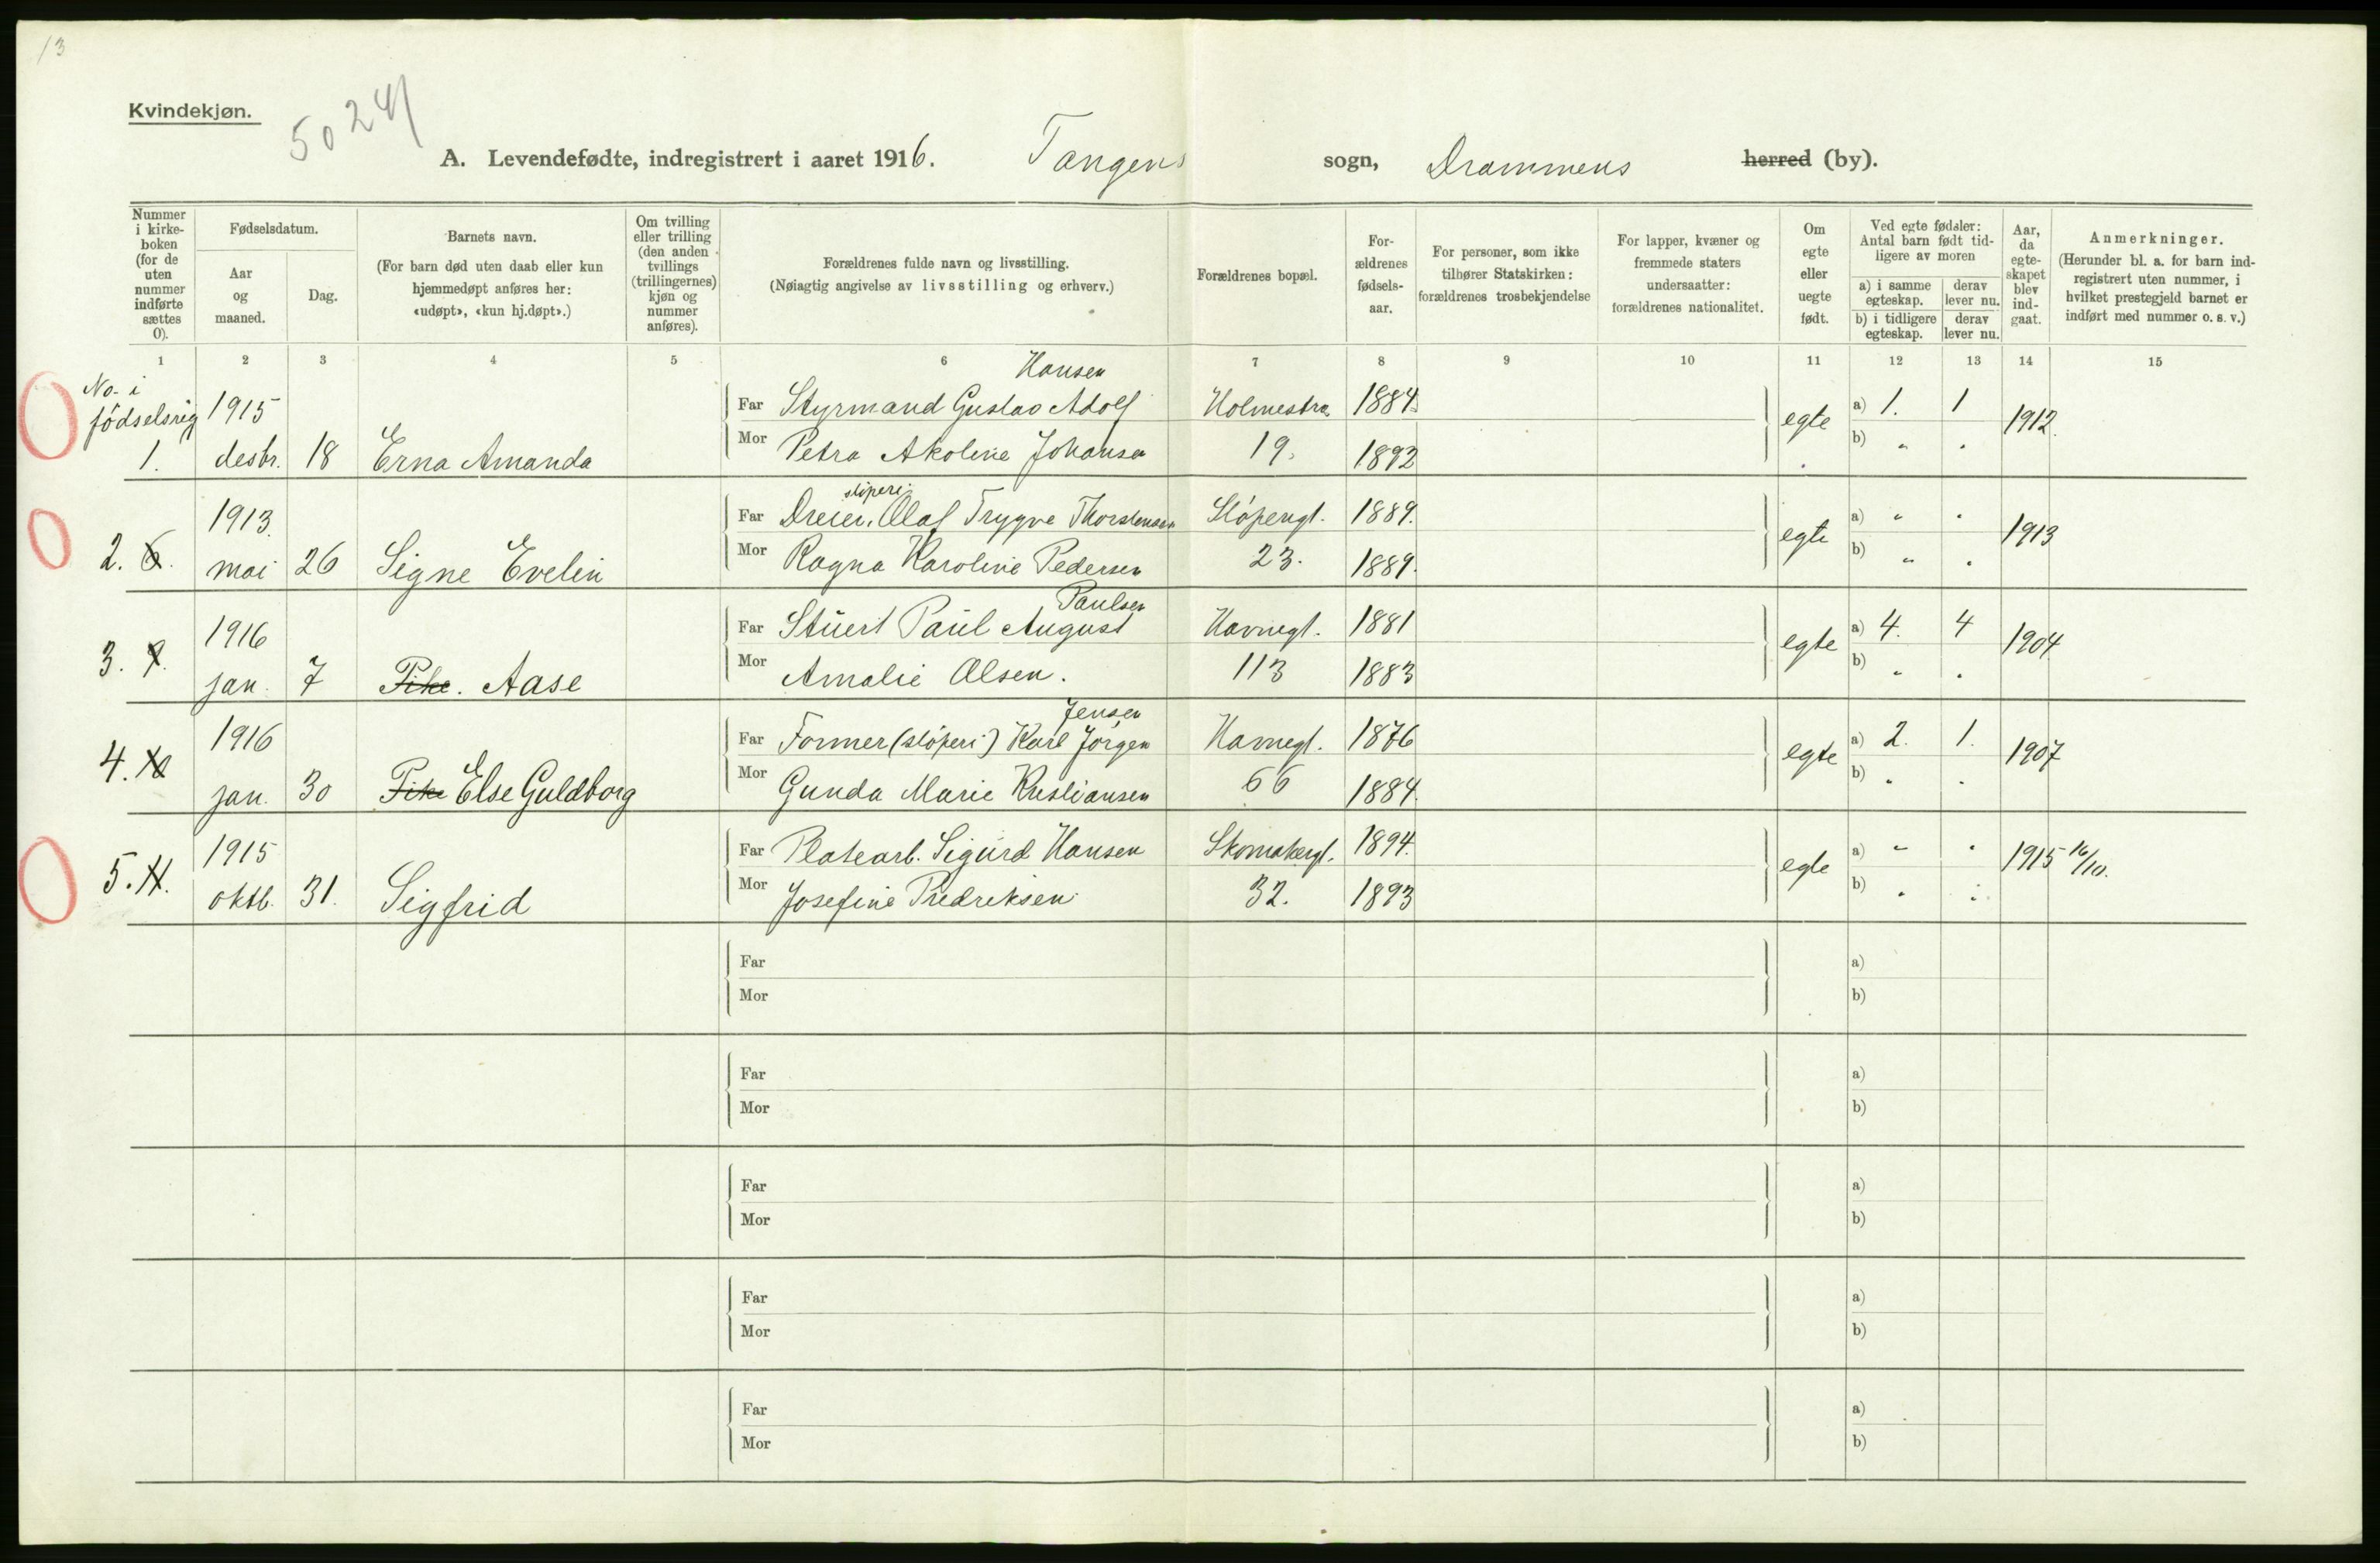 13
Kvindekjøn.
50 241
A. Levendefødte, indregistrert i aaret 1916. Tangens sogn, Drammens herred (by).
Nummer i kirke-boken (for de uten nummer indførte sættes 0).
Fødselsdatum.
Aar og maaned.
Dag.
Barnets navn.
(For barn død uten daab eller kun hjemmedøpt anføres her: «udøpt», «kun hj.døpt».)
Om tvilling eller trilling (den anden tvillings (trillingernes) kjøn og nummer anføres).
Forældrenes fulde navn og livsstilling.
(Nøiagtig angivelse av livsstilling og erhverv.)
Forældrenes bopæl.
For-ældrenes fødsels-aar.
For personer, som ikke tilhører Statskirken: forældrenes trosbekjendelse
For lapper, kvæner og fremmede staters undersaatter: forældrenes nationalitet.
Om egte eller uegte født.
Ved egte fødsler: Antal barn født tid-ligere av moren
a) i samme egteskap.
derav lever nu.
b) i tidligere egteskap.
derav lever nu.
Aar, da egte-skapet blev ind-gaat.
Anmerkninger.
(Herunder bl. a. for barn ind-registrert uten nummer, i hvilket prestegjeld barnet er indført med nummer o. s. v.)
1 2 3 4 5 6 7 8 9 10 11 12 13 14 15
No. i
fødselsreg
Hansen
1915 Far Styrmand Gustav Adolf Holmestra. 1884. egte a) 1. 1 1912.
1. desbr. 18 Erna Amanda Mor Petra Akoline Johansen 19. 1892 b) " "
sløperi.
1913. Far Dreier, Olaf Trygve Thorstensen Sløpengt. 1889. egte a) " " 1913
2. 6. mai 26 Signe Evelin Mor Ragna Karoline Pedersen 23. 1889. b) " "
Paulsen
1916 Far Stuert Paul August Havnegt. 1881 egte a) 4. 4 1904
3. 9. jan. 7 Pike. Aase Mor Amalie Olsen. 113 1883 b) " "
Jensen
1916 Far Former (sløperi) Karl Jørgen Havnegt. 1876 egte a) 2. 1. 1907
4. 10 jan. 30 Pike Else Guldborg Mor Gunda Marie Kristiansen 66 1884. b) " "
1915 Far Platearb. Sigurd Hansen Skomakergt. 1894. egte a) " " 1915 16/10.
5. 11. oktb. 31. Sigfrid Mor Josefine Fredriksen 32. 1893 b) " "
Far a)
Mor b)
Far a)
Mor b)
Far a)
Mor b)
Far a)
Mor b)
Far a)
Mor b)